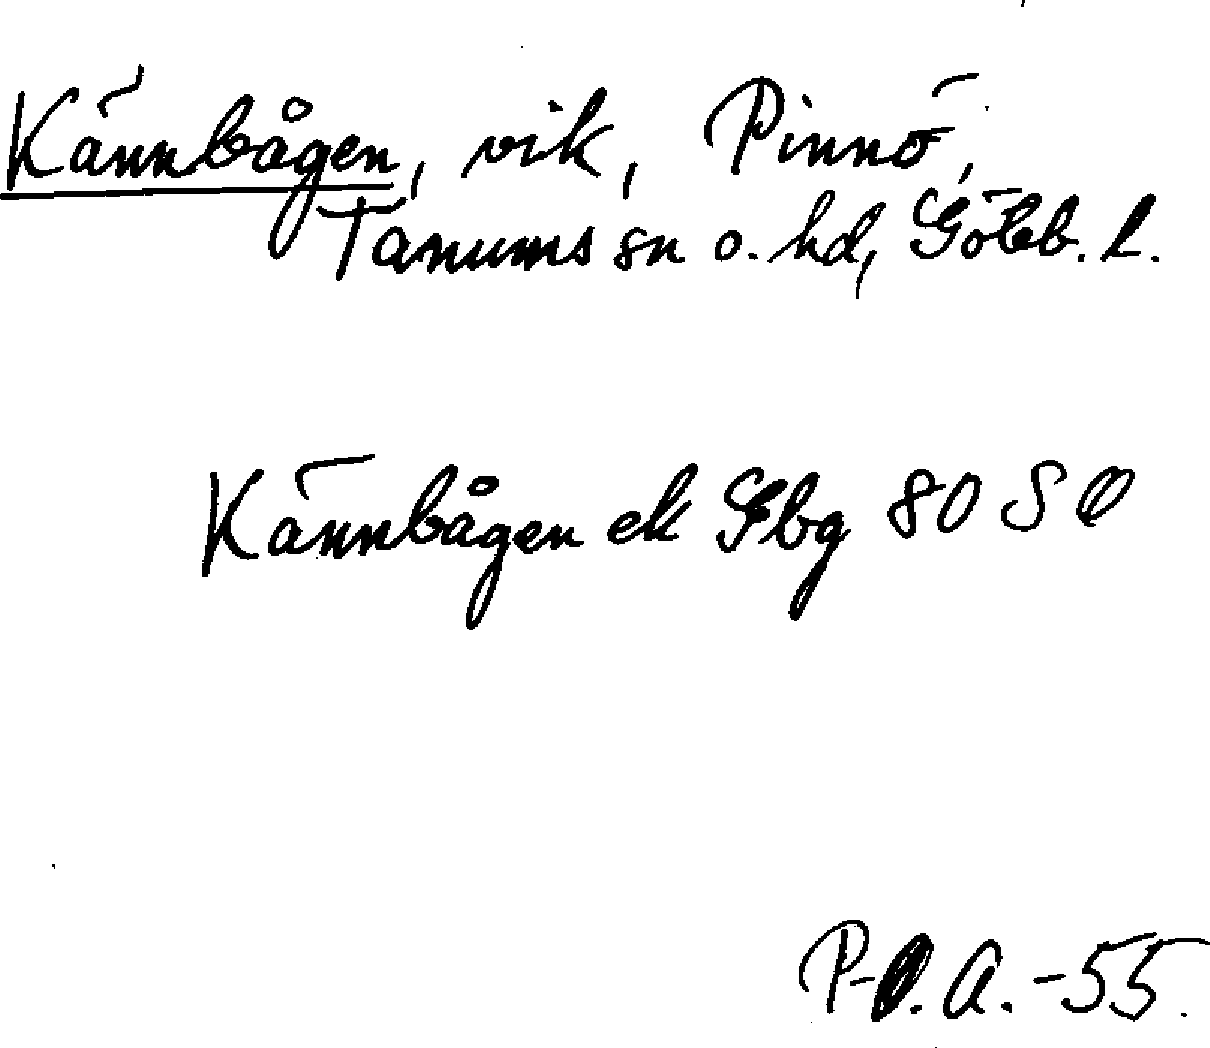 Kännbågen, vik, Pinnö,
Tanums sn o. hd, Göteb. l.
Kännbågen ek Gbg 80 SO
P-O. A. -55.